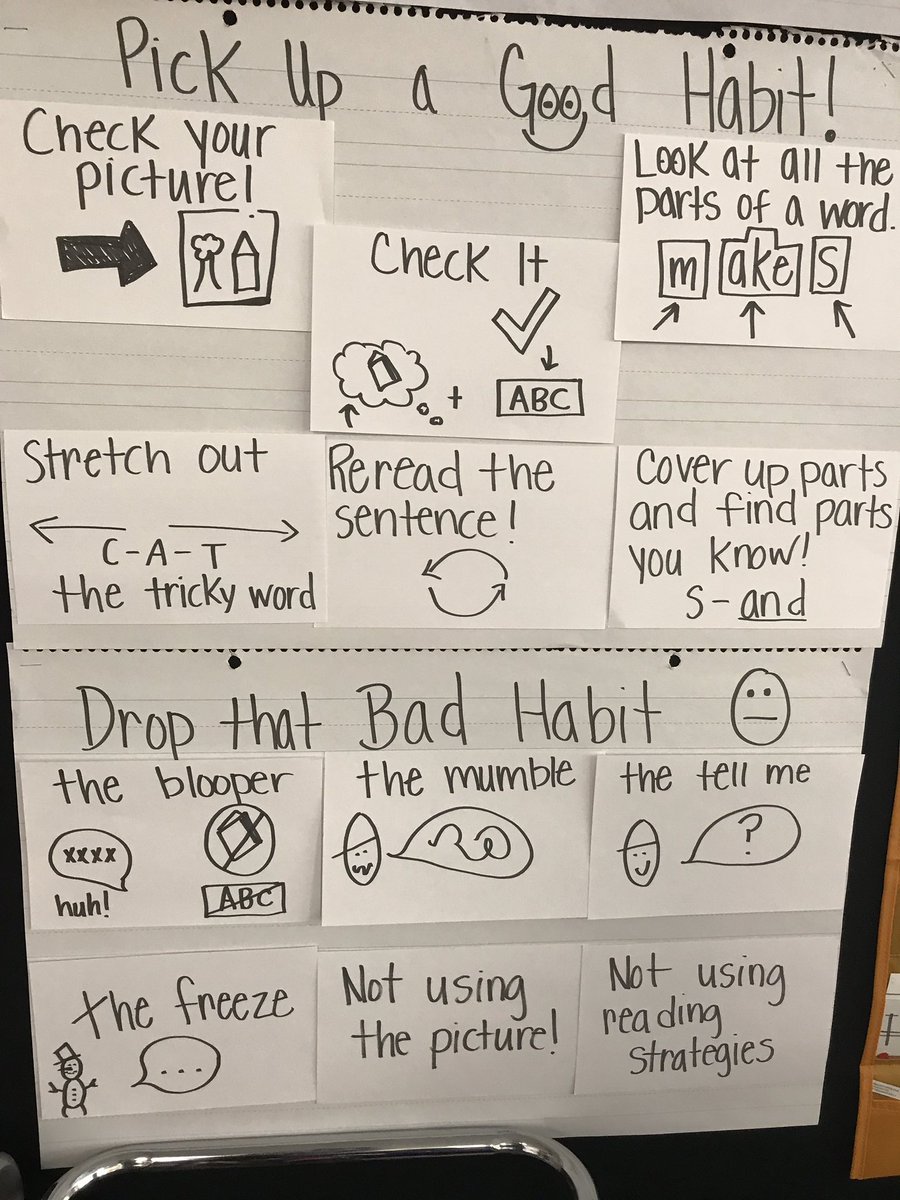 Pick Up a Good Habit!
Check your
picture!
Check It
ABC
Look at all the
parts of a word.
m ake s
Stretch out
C-A-T
the tricky word
Reread the
sentence!
Cover up parts
and find parts
you know!
S-and
Drop that Bad Habit
the blooper
xxxx
huh!
ABC
the mumble
the tell me
?
the freeze
...
Not using
the picture!
Not using
reading
strategies